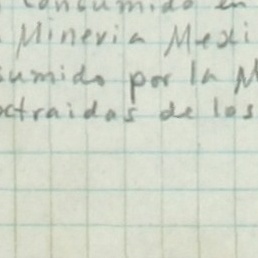 consumido en
Mineria Mexi
sumido por la M
xtraidos de los